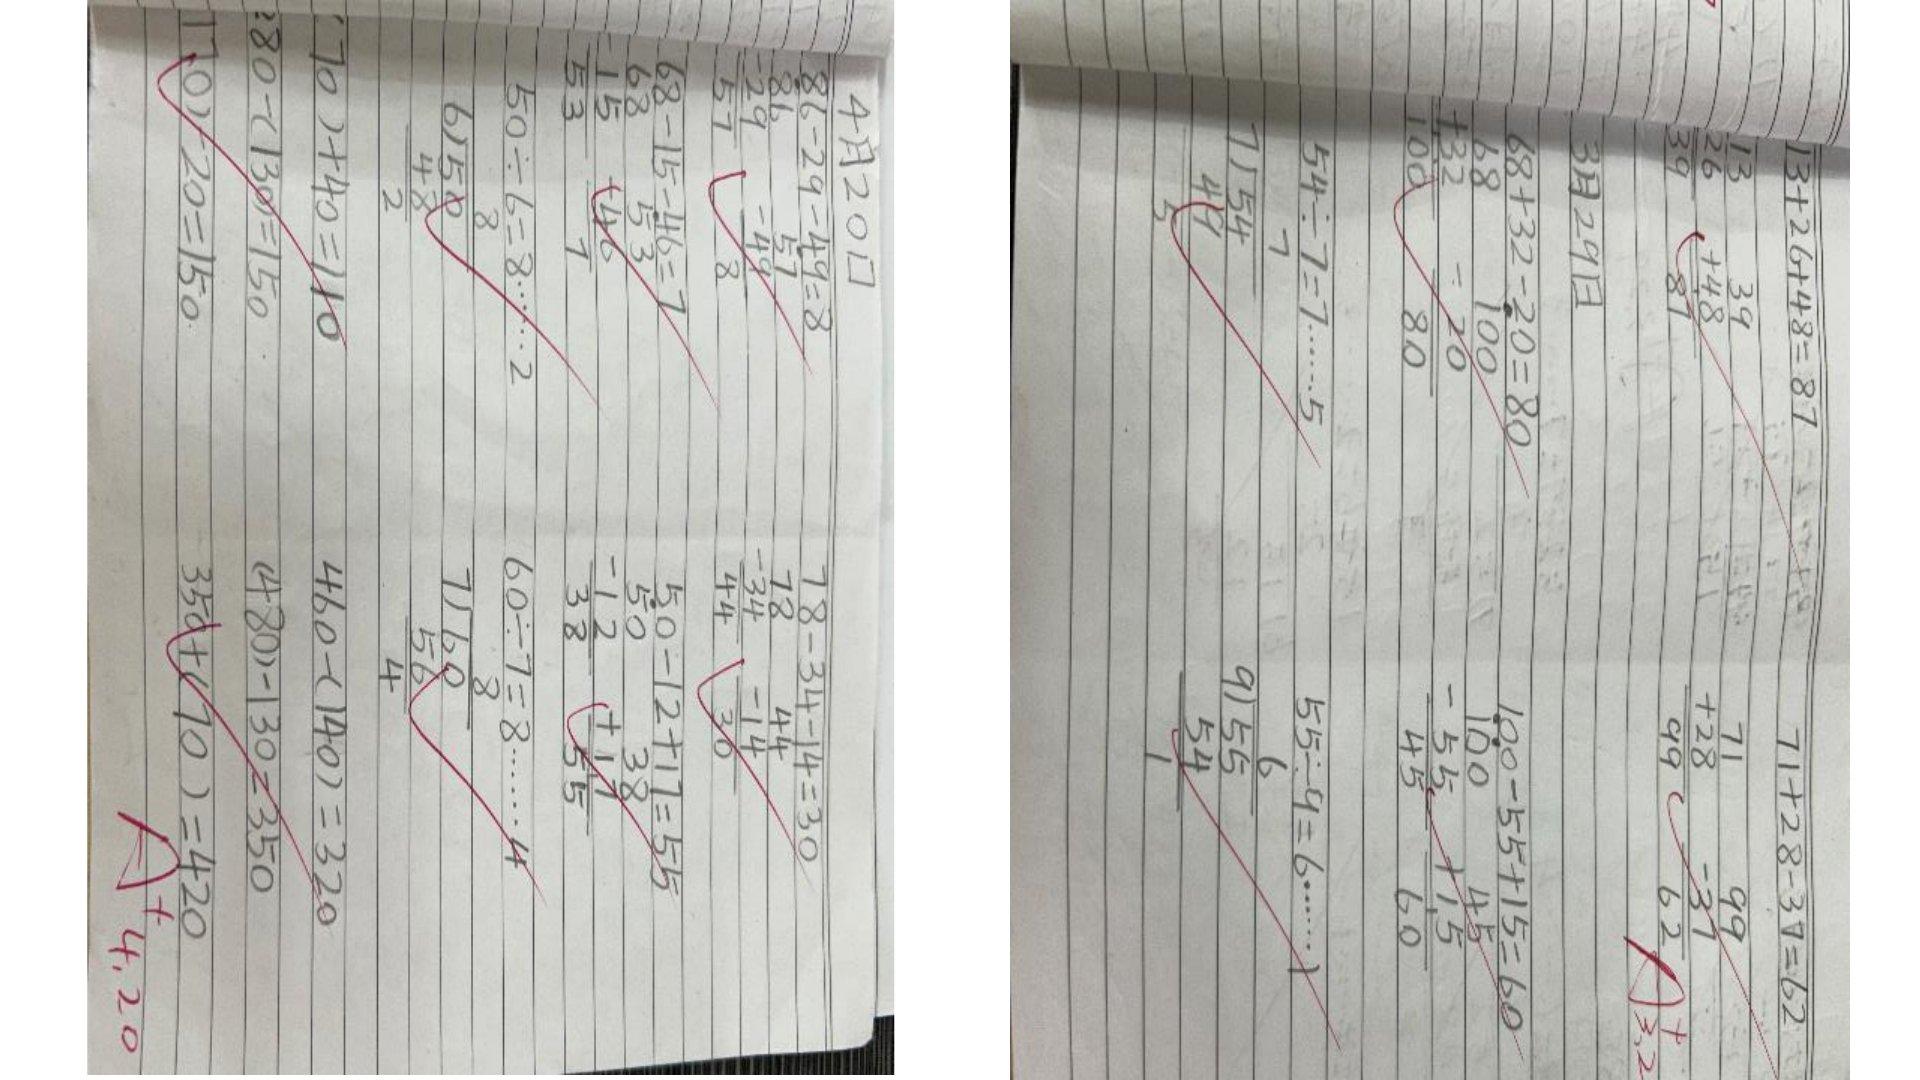 4月20日
86-29-49=8 78-34-14=30
86 57 78 44
-29 -49 -34 -14
57 8 44 30
68-15-46=7 50-12+17=55
68 53 50 38
-15 -46 -12 +17
53 7 38 55
50÷6=8……2 60÷7=8……4
8 8
6)50 7)60
48 56
2 4
(70)+40=110 460-(140)=320
280-(130)=150 (480)-130=350
170)-20=150 350+(70)=420
A+ 4.20
13+26+48=87 71+28-37=62
13 39 71 99
26 +48 +28 -37
39 87 99 62
A+ 3.2
3月29日
68+32-20=80 100-55+15=60
68 100 100 45
+32 -20 -55 +15
100 80 45 60
54÷7=7……5 55÷9=6……1
7 6
7)54 9)55
49 54
5 1